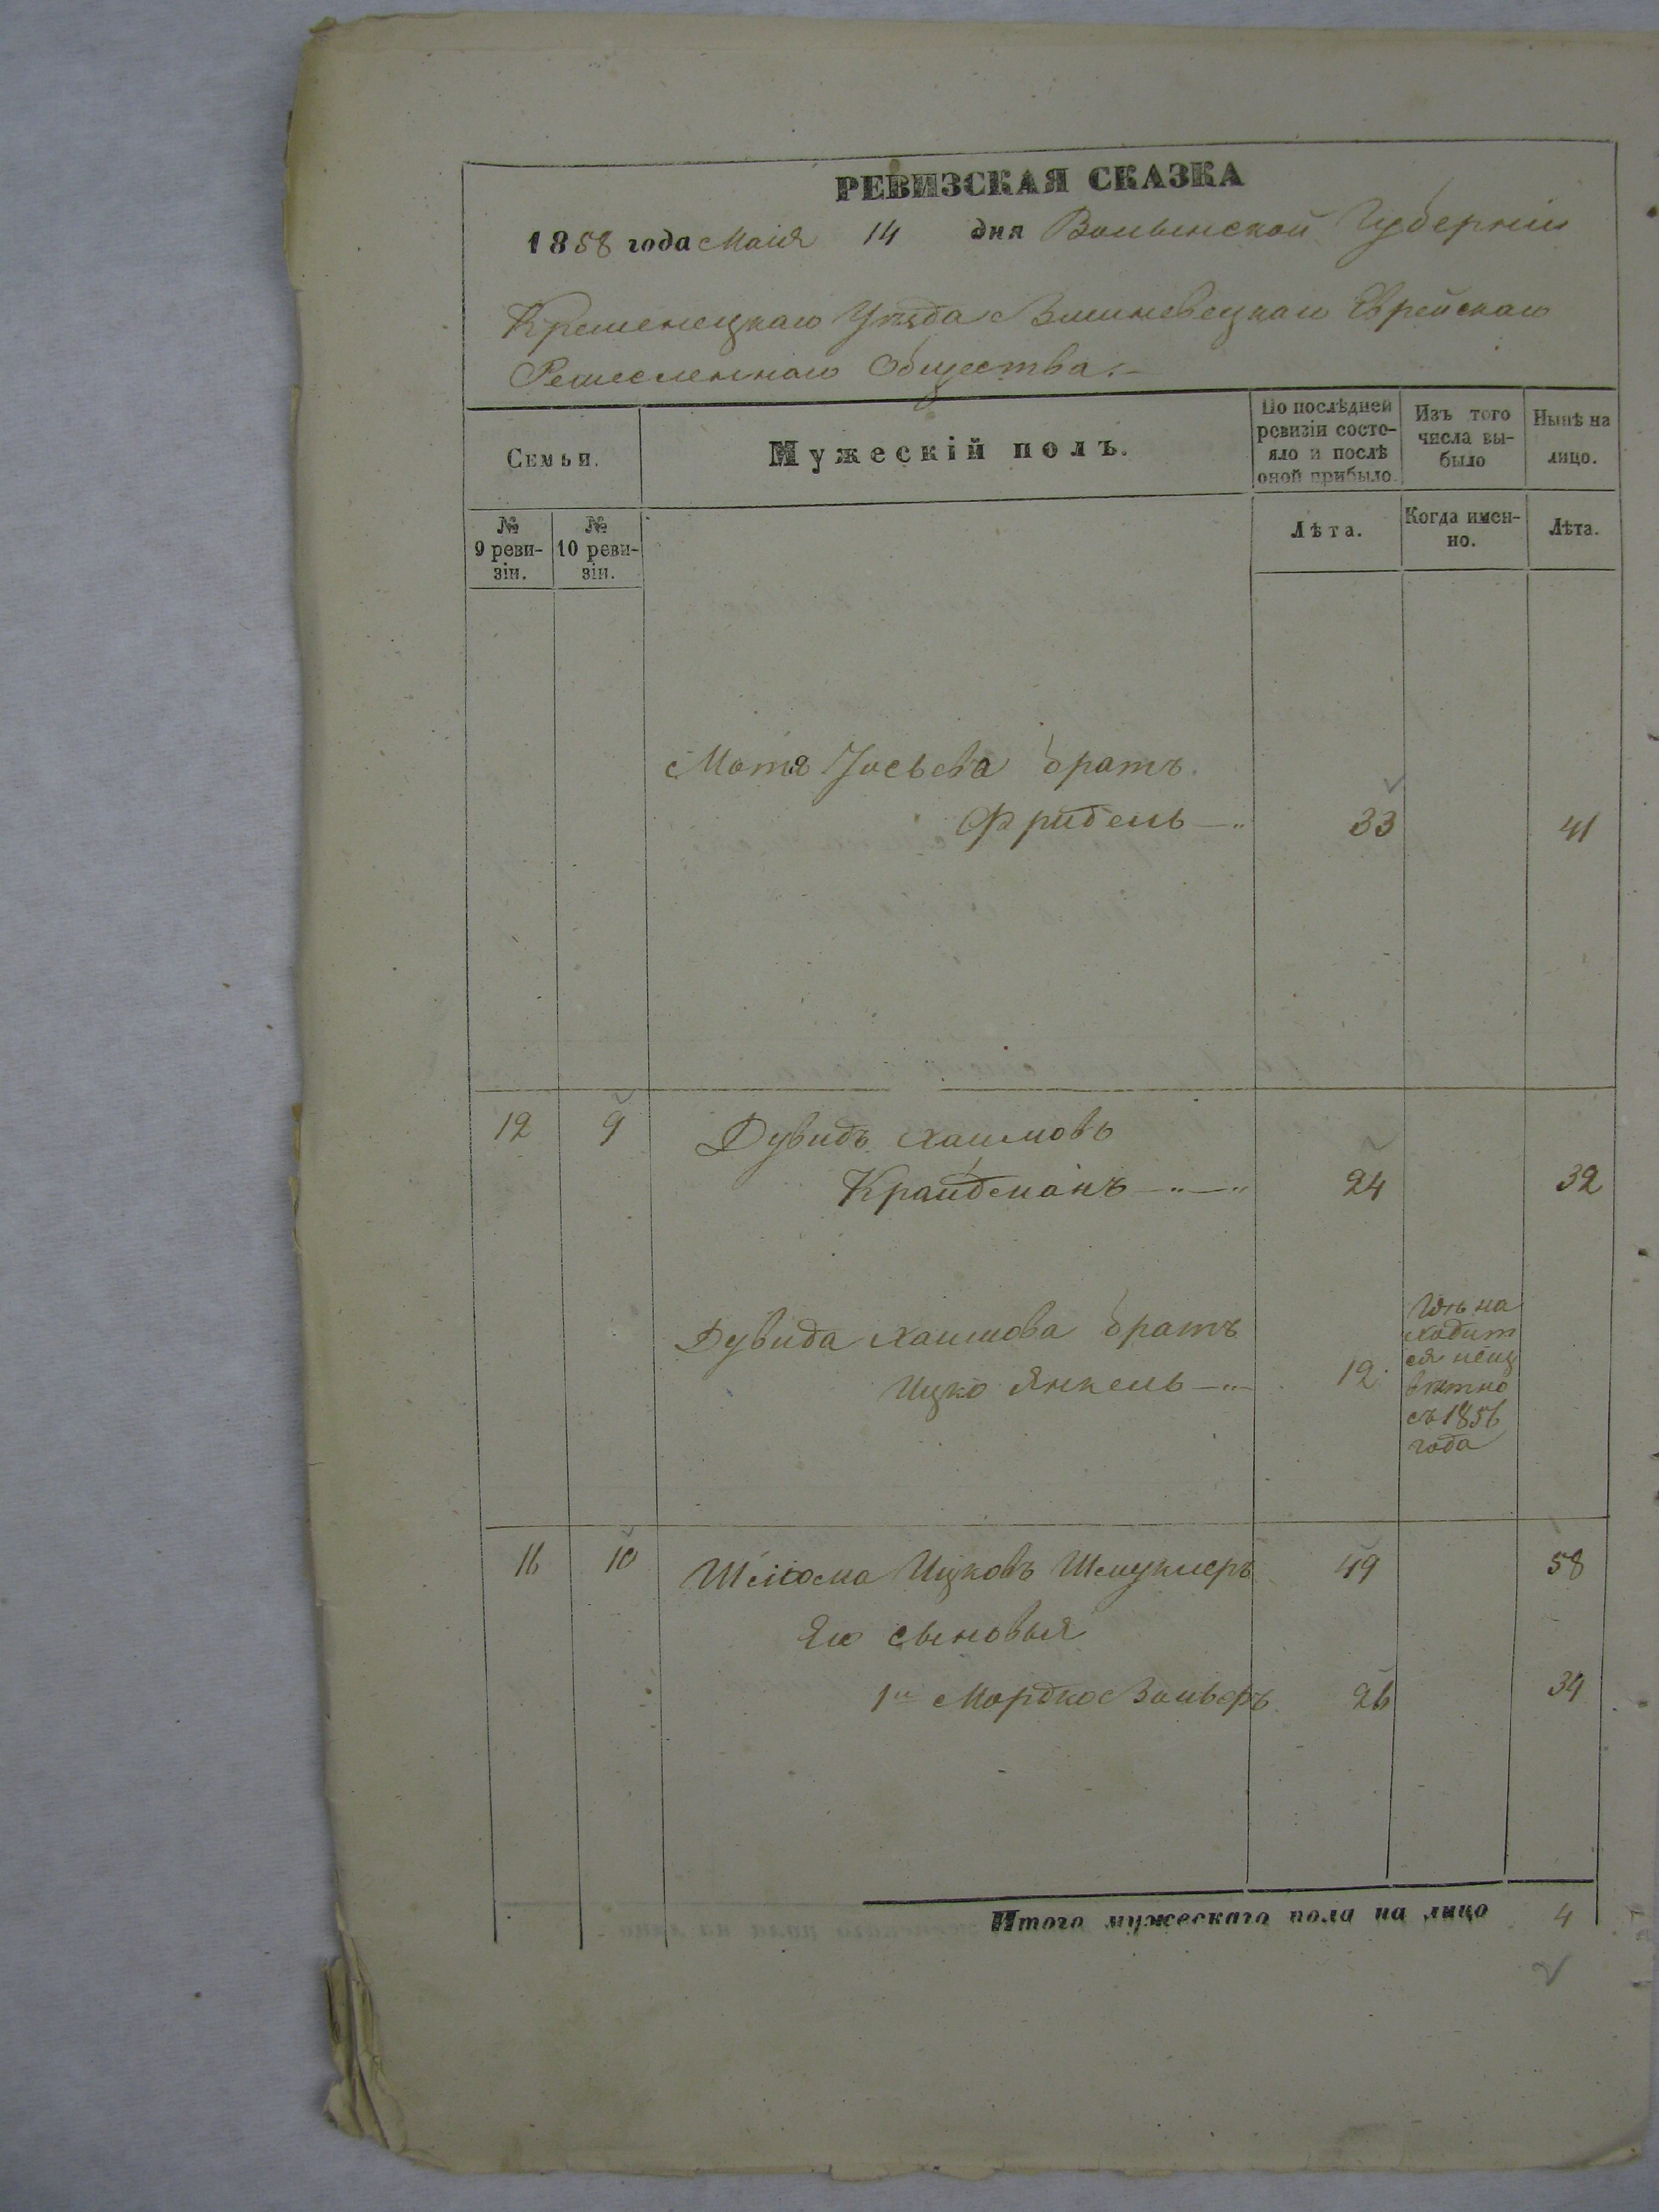 РЕВИЗСКАЯ СКАЗКА
1858 года Маія 14 дня Волынской Губерніи
Кременецкаго Уѣзда Вишневецкаго Еврейскаго
Ремесленнаго Общества.-
Семьи.
Мужескій полъ.
По послѣдней ревизіи состояло и послѣ оной прибыло.
Изъ того числа выбыло
Нынѣ на лицо.
№ 9 ревизіи.
№ 10 ревизіи.
Лѣта.
Когда именно.
Лѣта.
Мотя Іосьева братъ
Фридель 33 41
12 9 Дувидъ Хаимовъ
Крайдманъ 24 32
Дувида Хаимова братъ
Ицко Янкель 12
Гдѣ на
ходит
ся неиз
вѣтно
съ 1856
года
16 10 Шліома Ицковъ Шмуклеръ 49 58
Его сыновья
1й Мордко Вольфъ 26 34
Итого мужескаго пола на лицо 4